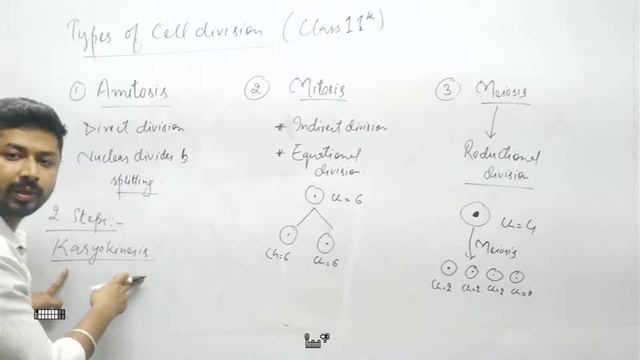 Types of Cell division (Class 11th)
① Amitosis
Direct division
Nuclear divides b
splitting.
2 Steps:-
Karyokinesis
② Mitosis
* Indirect division
* Equational
division.
Ch=6
Ch=6 Ch=6
③ Meiosis
Reductional
division
Ch=4
Meiosis
Ch=2 Ch=2 Ch=2